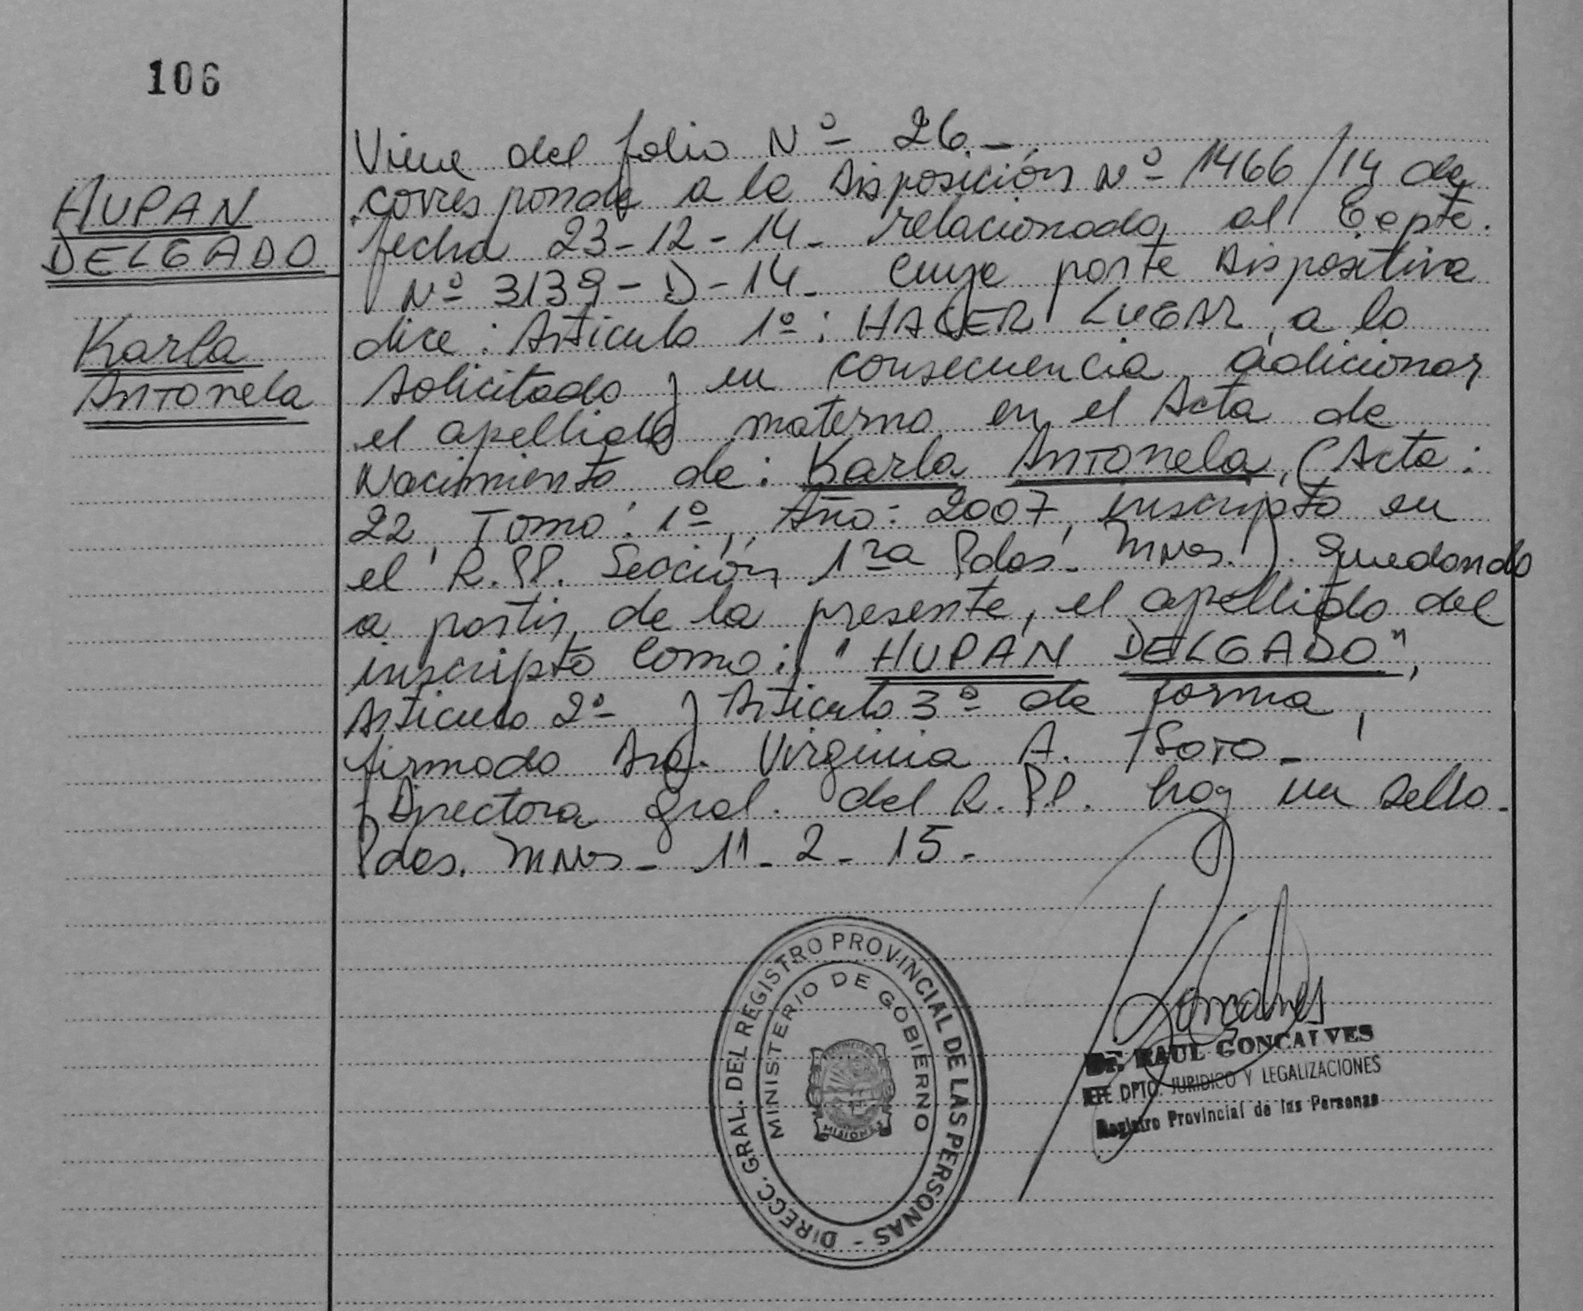 106
HUPAN
DELGADO
Karla
Antonela
Viene del folio Nº 26.-
corresponde a la Disposición Nº 1466/14 de
fecha 23-12-14- relacionada al Expte.
Nº 3139-D-14- cuya parte Dispositiva
dice: Artículo 1º: HACER LUGAR, a lo
solicitado y en consecuencia adicionar
el apellido materno en el Acta de
Nacimiento de: Karla Antonela, (Acta:
22, Tomo: 1º, Año: 2007, inscripto en
el R.PP. Sección 1ra Pdas. Mnes.). Quedando
a partir de la presente, el apellido del
inscripto como: "HUPAN DELGADO",
Artículo 2º y Artículo 3º de forma,
firmado Sra. Virginia A. Soto-
Directora Gral. del R.PP. hay un sello.
Pdas. Mnes- 11-2-15-
DIRECC. GRAL. DEL REGISTRO PROVINCIAL DE LAS PERSONAS -
MINISTERIO DE GOBIERNO
MISIONES
Goncalves
Dr. RAUL GONCALVES
JEFE DPTO. JURIDICO Y LEGALIZACIONES
Registro Provincial de las Personas